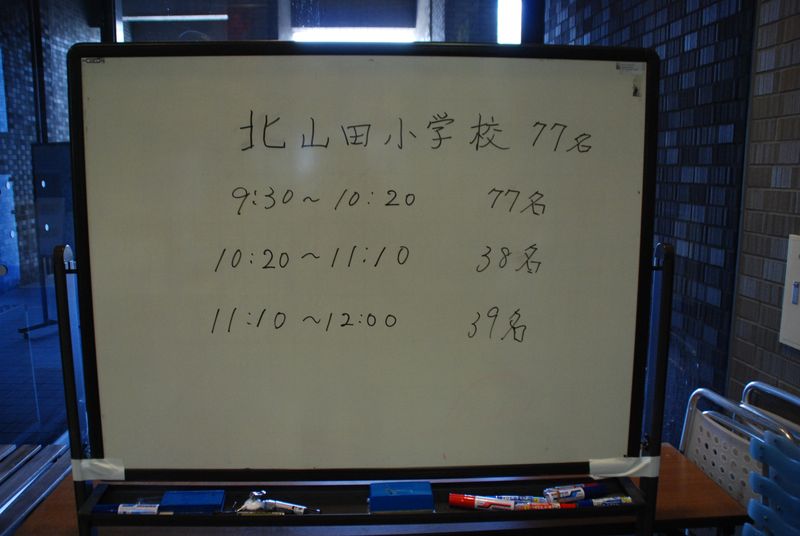 北山田小学校 77名
9:30～10:20 77名
10:20～11:10 38名
11:10～12:00 39名